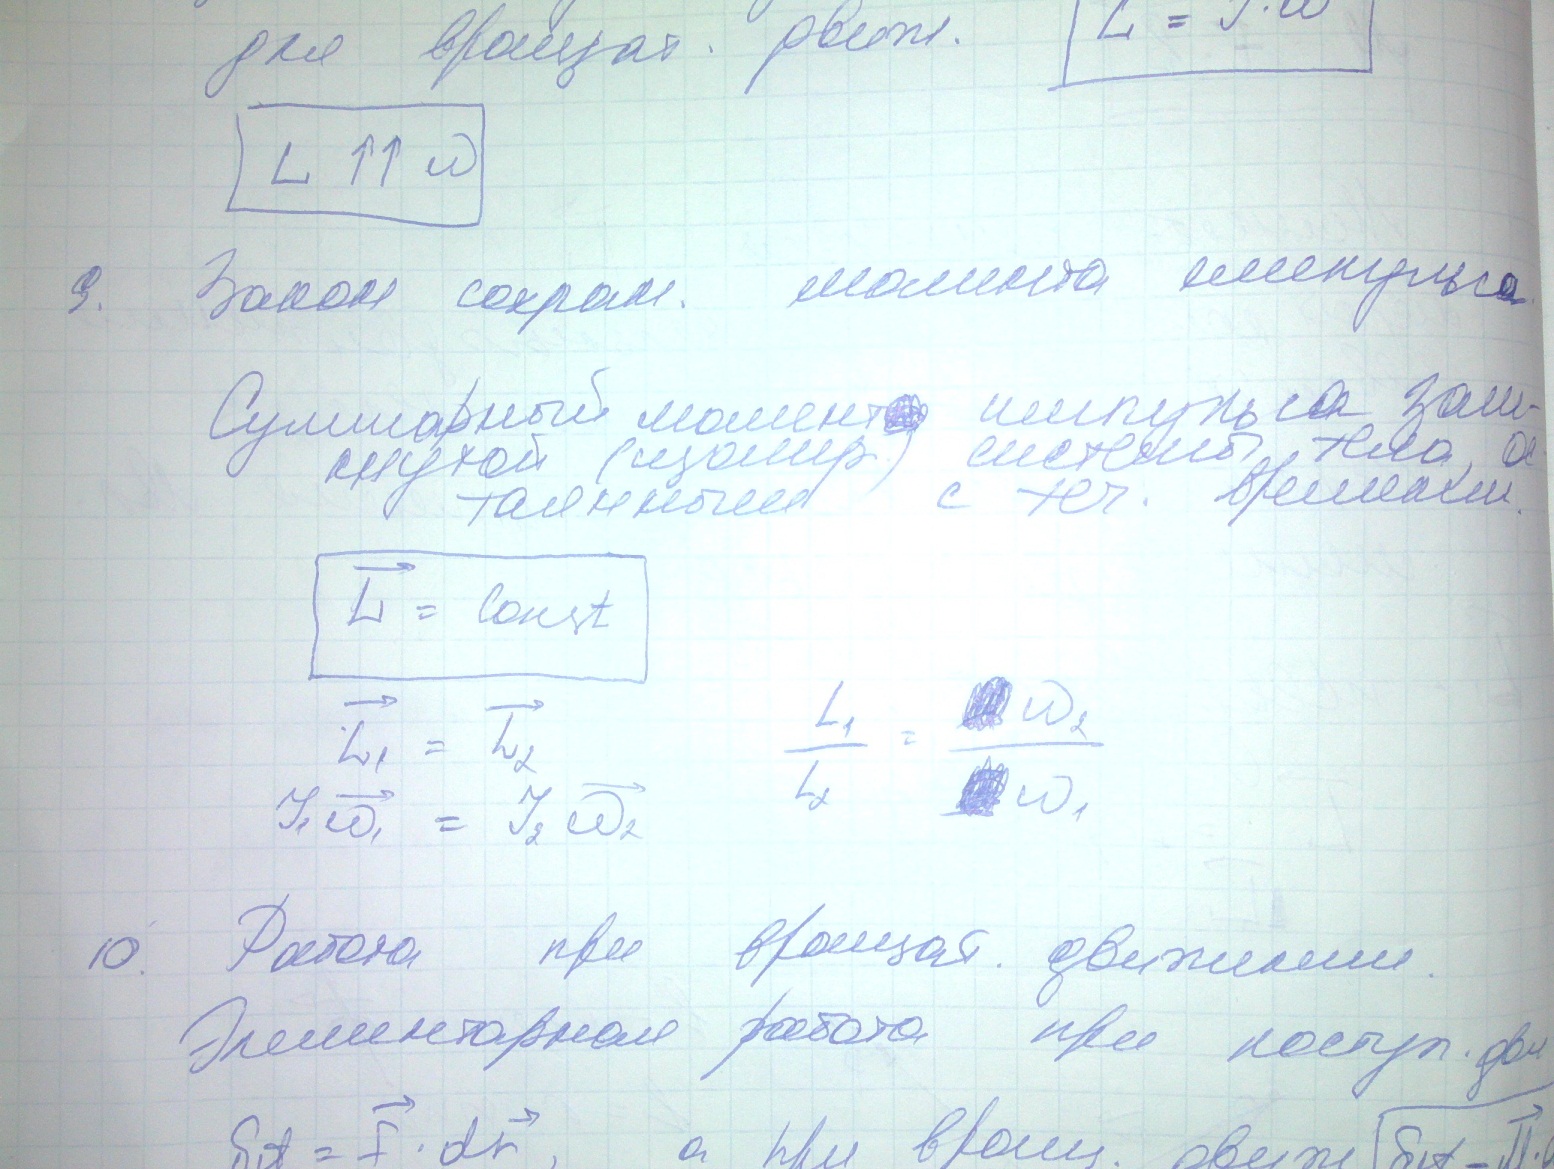 для вращат. движ. L = J·ω
L ↑↑ ω
9. Закон сохран. момента импульса.
Суммарный момент импульса замк-
снутой (изолир.) системы тела, ос-
таянным с теч. времени.
L⃗ = const
L⃗₁ = L⃗₂
L₁/L₂ = ω₂/ω₁
J₁ω⃗₁ = J₂ω⃗₂
10. Работа при вращат. движении.
Элементарная работа при поступ. дви
δA = F⃗ · dr⃗, а при вращ. движ